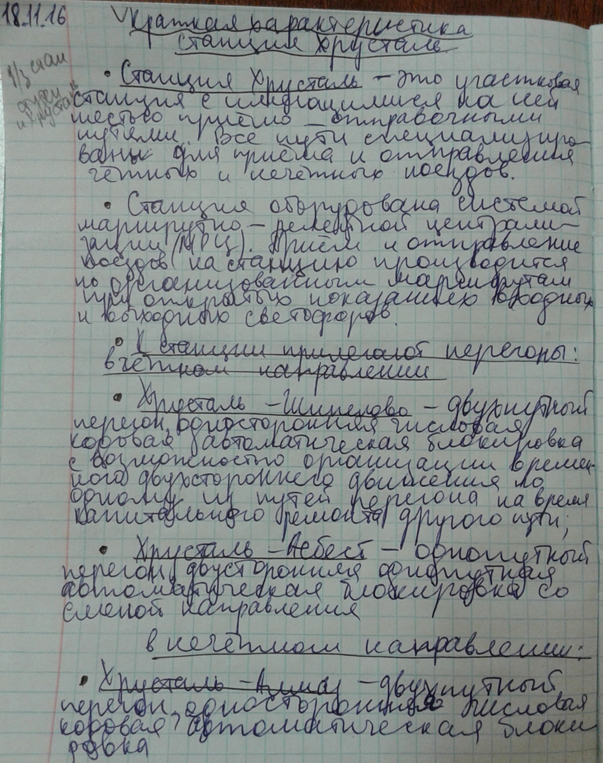 18.11.16
Краткая характеристика
станции Хрусталь
1/3 стан
и Хрусталь
• Станция Хрусталь – это участковая
станция с имеющимися на ней
шестью приёмо – отправочными
путями. Все пути специализиро-
ваны для приёма и отправления
чётных и нечётных поездов.
• Станция оборудована системой
маршрутно – релейной централи-
зации (МРЦ). Приём и отправление
поездов на станцию производится
по организованным маршрутам
при открытых показаниях входных
и выходных светофоров.
• К станции прилегают перегоны:
в чётном направлении
• Хрусталь – Шипелово – двухпутный
перегон, односторонняя числовая
кодовая автоматическая блокировка
с возможностью организации времен-
ного двухстороннего движения по
одному из путей перегона на время
капитального ремонта другого пути;
• Хрусталь – Асбест – однопутный
перегон, двусторонняя однопутная
автоматическая блокировка со
сменой направления
в нечётном направлении:
• Хрусталь – Алмаз – двухпутный
перегон, односторонняя числовая
кодовая автоматическая блоки
ровка